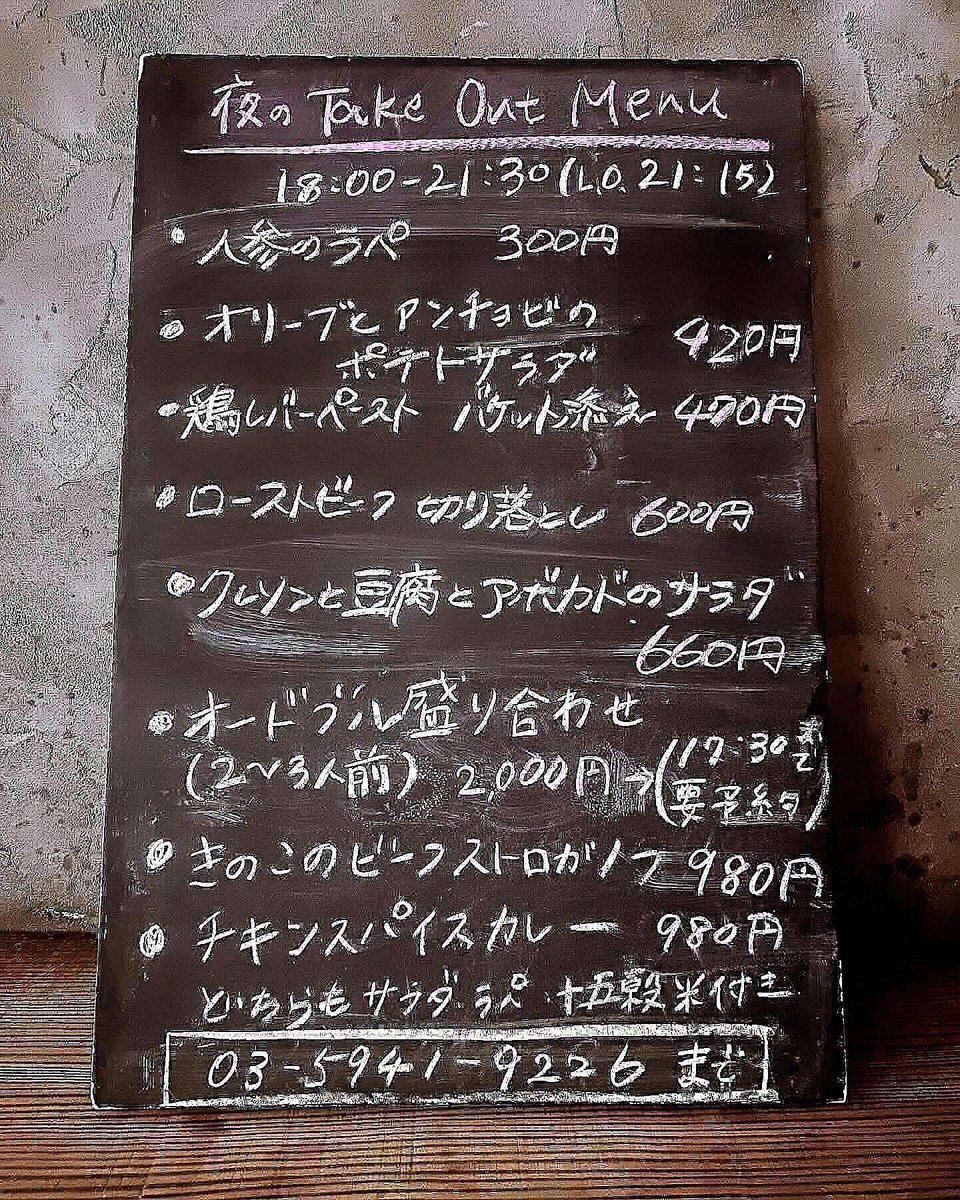 夜の Take Out Menu
18:00-21:30(L.O.21:15)
・人参のラペ 300円
・オリーブとアンチョビの
ポテトサラダ 420円
・鶏レバーペースト バケット添え 470円
・ローストビーフ 切り落とし 600円
・クレソンと豆腐とアボカドのサラダ
660円
・オードブル盛り合わせ
(2〜3人前) 2,000円→(17:30まで要予約)
・きのこのビーフストロガノフ 980円
・チキンスパイスカレー 980円
どちらもサラダ、ラペ 十五穀米付き
03-5941-9226 まで